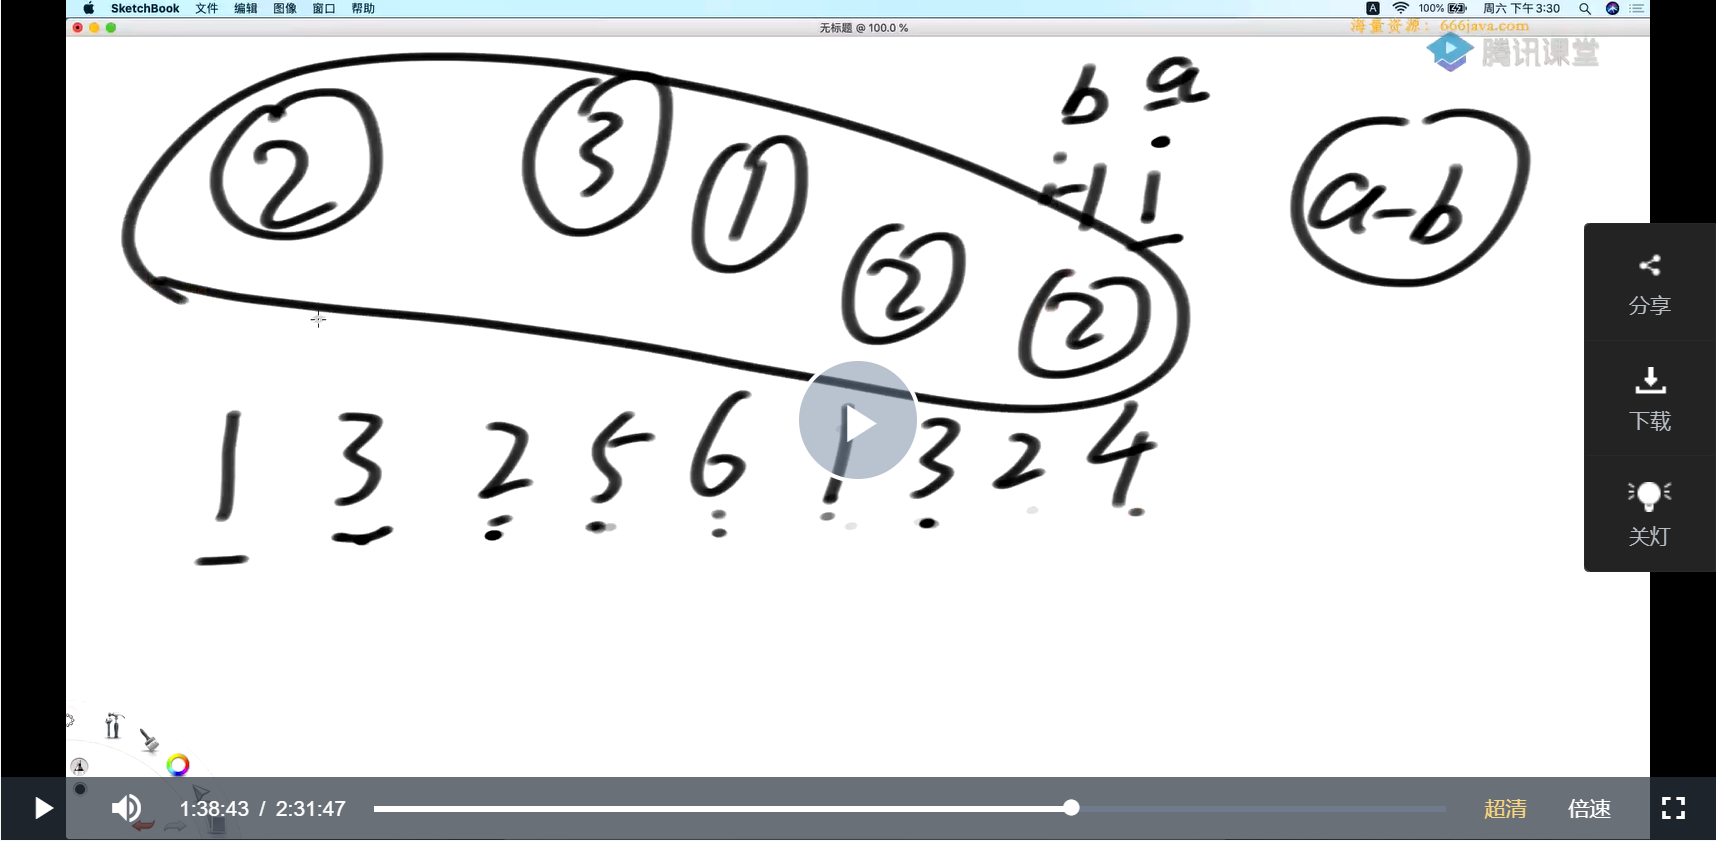 SketchBook 文件 编辑 图像 窗口 帮助 A 100% 周六 下午3:30
无标题 @ 100.0 %
海量资源：666java.com
腾讯课堂
b a
2 3 1 -1 1 a-b
2 2
1 3 2 5 6 1 3 2 4
分享
下载
关灯
1:38:43 / 2:31:47 超清 倍速